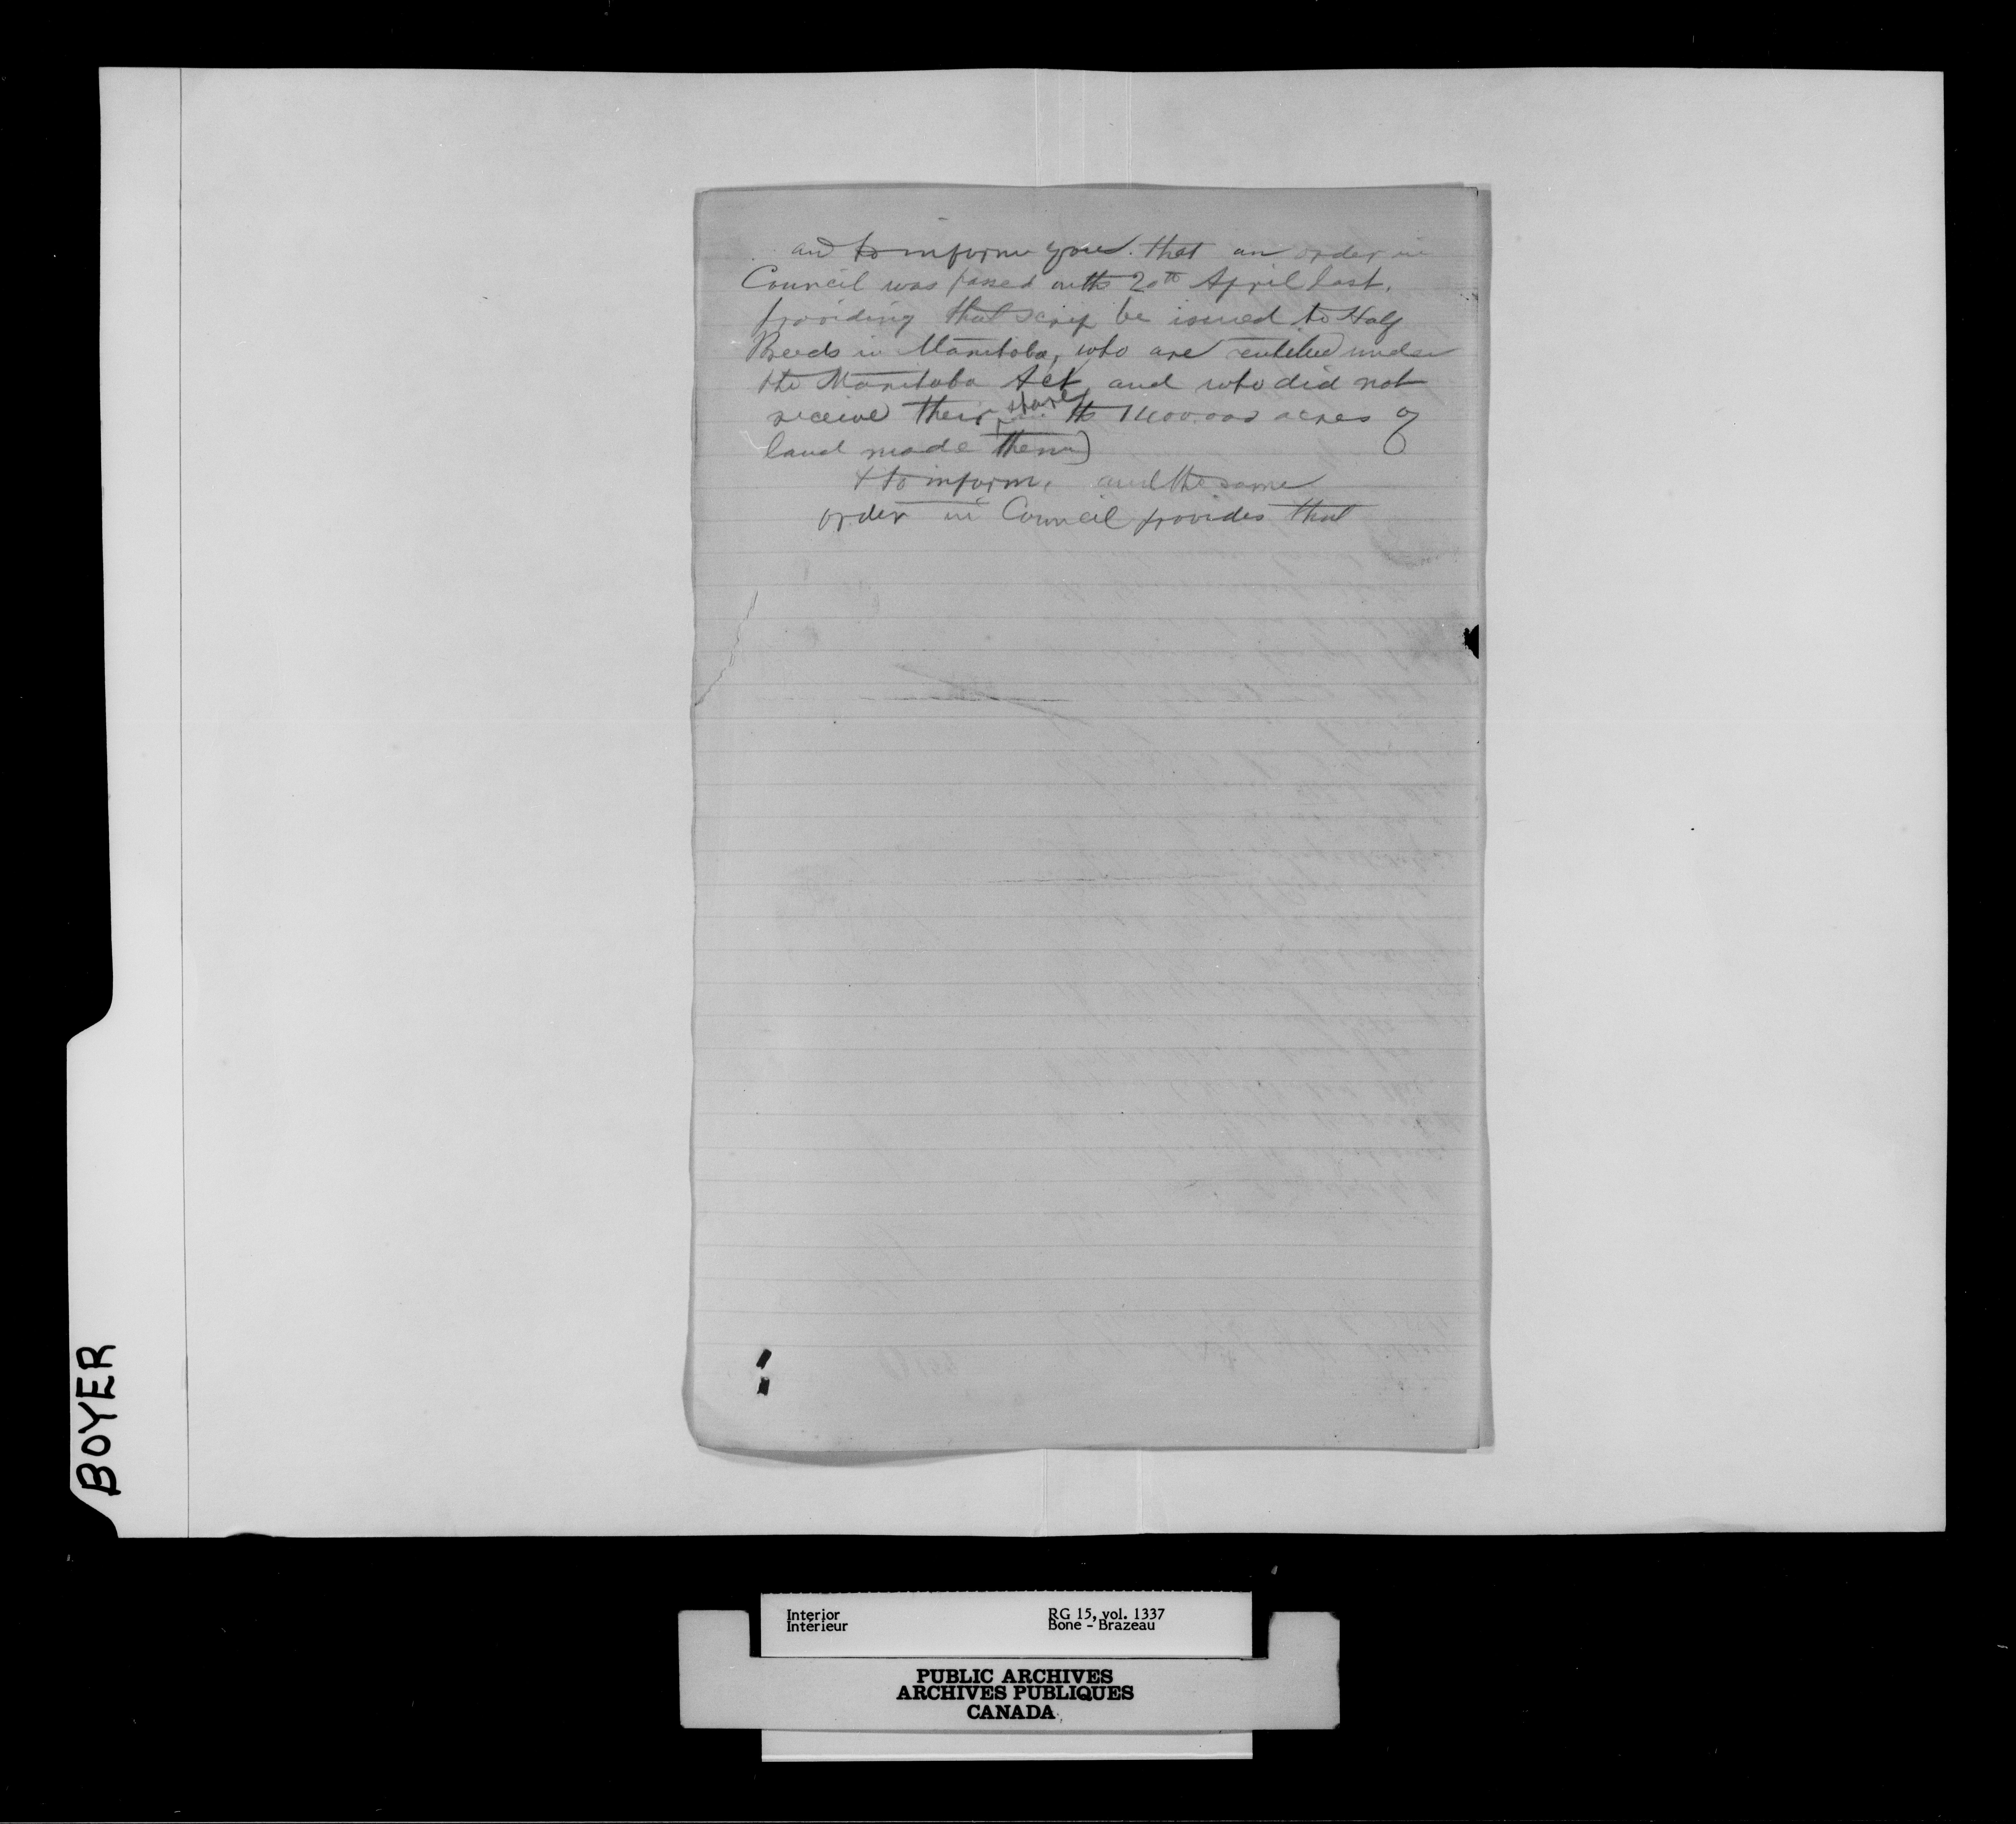 and to inform you. that an order in
Council was passed on the 20th April last,
providing that scrip be issued to Half
Breeds in Manitoba, who are entitled under
the Manitoba Act, and who did not
receive their share the 1400.000 acres of
land made them)
& to inform, and the same
order in Council provides that
BOYER
Interior
Intérieur
RG 15, vol. 1337
Bone - Brazeau
PUBLIC ARCHIVES
ARCHIVES PUBLIQUES
CANADA